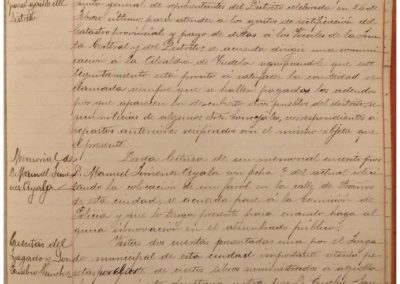 para gastos del
Distrito
junta general de representantes del Distrito celebrada en 26 de
último para atender á los gastos de rectificación del
Catastro provincial y pago de dietas á los Vocales de la Jun
ta Central y del Distrito, se acuerda dirigir una comuni
cación a la Alcaldia de Tudela significandole que este
Ayuntamiento está pronto á satisfacer la cantidad re
clamada siempre que se hallen pagados los adeudos
por que aparecen en descubierto otros pueblos del distrito, se
gun noticias de algunos Sres. Concejales, correspondientes á
repartos anteriores verificados con el mismo objeto que
el presente.
Memorial de
D. Manuel Jime
nez Ayala
Dada lectura de un memorial suscrito por
D. Manuel Jimenez Ayala con fecha 7 del actual solici
tando la colocación de un farol en la calle de
de esta ciudad, se acuerda pase á la Comisión de
Policia y que lo tenga presente para cuando haga al
guna innovación en el alumbrado público.
Cuentas del
Juzgado y Don
Eusebio Sanchez
Vistas dos cuentas presentadas una por el Juzga
do municipal de esta ciudad importante setenta pe
setas por de ciertos libros suministrados á aquella